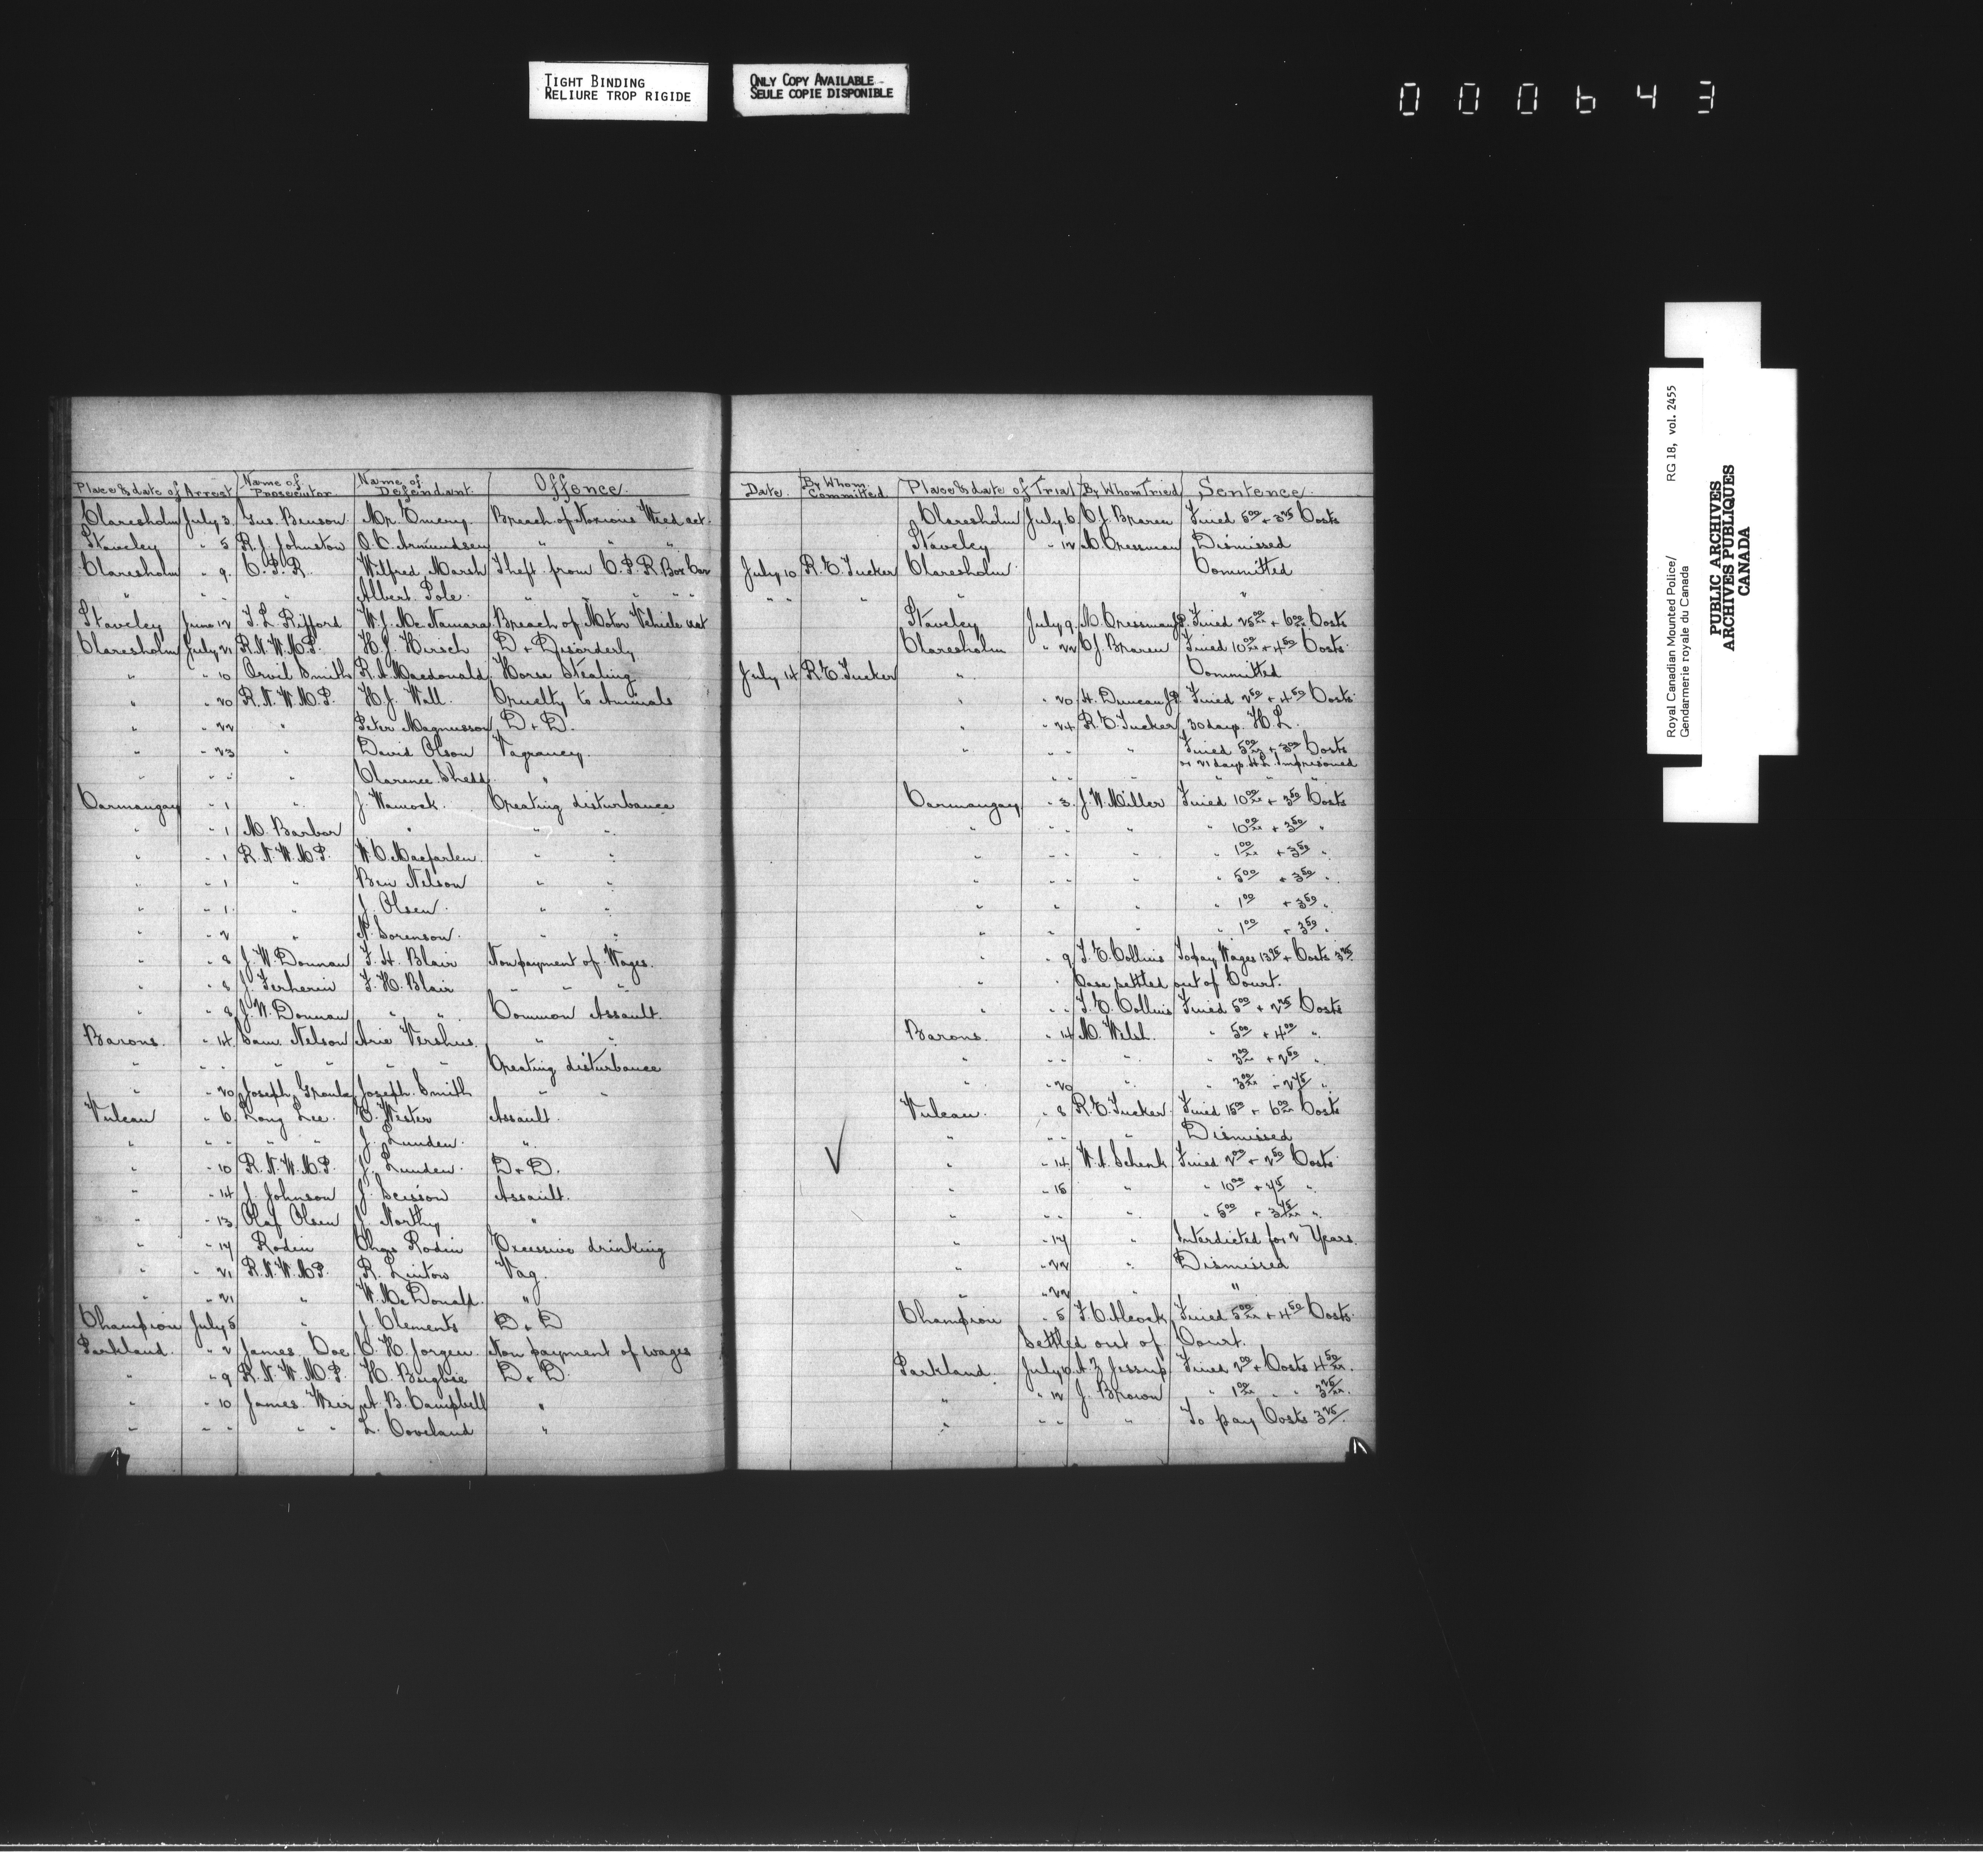 TIGHT BINDING
RELIURE TROP RIGIDE
ONLY COPY AVAILABLE
SEULE COPIE DISPONIBLE
000643
Place & date of Arrest Name of Prosecutor Name of Defendant Offence Date. By Whom Committed Place & date of Trial By Whom Tried Sentence
Claresholm July 3 Gus. Benson Mr. Emery Breach of Noxious Weed act. Claresholm July 6 C.J. Braren Fined 5 00 + 3 25 Costs
Staveley " 5 R.J. Johnston O.C. Armundsen " " " Staveley " 12 M. Cressman Dismissed
Claresholm " 9 C.P.R. Wilfred Marsh Theft from C.P.R. Box Car July 10 R.E. Tucker Claresholm Committed
" " " Albert Pole " " " " " " " " "
Staveley June 12 T.L. Rifford W.J. McNamara Breach of Motor Vehicle act Staveley July 9 M. Cressman J.P. Fined 25 00 + 6 00 Costs
Claresholm July 21 R.N.W.M.P. H.J. Hirsch D + Disorderly Claresholm " 22 C.J. Braren Fined 10 00 + 4 50 Costs
" " 10 Orvil Smith R.A. Macdonald Horse Stealing July 14 R.E. Tucker " Committed
" " 20 R.N.W.M.P. H.J. Wall. Cruelty to Animals " " 20 H. Duncan J.P. Fined 2 50 + 4 50 Costs
" " 22 " Peter Magnusson D + D. " " 24 R.E. Tucker 30 days H.L.
" " 23 " David Olson Vagrancy. " " " " Fined 5 00 + 3 00 Costs
or 21 days H.L. Imprisoned
" " " " Clarence Shedd " " " " " "
Carmangay " 1 " J. Warnock Creating disturbance Carmangay " 3 J.W. Miller Fined 10 00 + 3 50 Costs
" " 1 M. Barber " " " " " " " 10 00 + 3 50 "
" " 1 R.N.W.M.P. W.C. Macfarlen " " " " " " " 1 00 + 3 50 "
" " 1 " Ben Nelson " " " " " " " 5 00 + 3 50 "
" " 1 " J. Olsen " " " " " " " 1 00 + 3 50 "
" " 2 " N. Sorenson " " " " " " " 1 00 + 3 50 "
" " 8 J.W. Donnan F.H. Blair Non payment of Wages. " " 9 T.E. Collins To pay Wages + Costs
" " 8 J. F.H. Blair " " " " " Case settled out of Court.
" " 8 J.W. Donnan " " Common Assault. " " " T.E. Collins Fined 5 00 + 2 25 Costs
Barons " 14 Sam. Nelson Arie Vershus. " " Barons. " 14 M. Welsh. " 5 00 + 4 00 "
" " " " " " " Creating disturbance " " " " " 3 00 + 2 50 "
" " 20 Joseph Joseph Smith " " " " 20 " " 3 00 + 2 75 "
Vulcan " 6 Long Lee. C. Wester Assault. Vulcan. " 8 R.E. Tucker Fined 15 00 + 6 00 Costs
" " " " " J. Lunden " " " " " Dismissed
" " 10 R.N.W.M.P. J. Lunden D + D. " " 14 W.A. Schenk Fined 2 00 + 2 50 Costs
" " 14 J. Johnson J. Scission Assault. " " 15 " " 10 00 + "
" " 13 Olaf Olsen J. Northy " " " " " " 5 00 + 3 75 "
" " 17 Rodin Chas Rodin Excessive drinking " " 17 " Interdicted for 2 Years.
" " 21 R.N.W.M.P. R. Linton Vag. " " 22 " Dismissed
" " 21 " W. McDonald " " " 22 " "
Champion July 5 " J. Clements D + D Champion " 5 T.C. Alcock Fined 5 00 + 4 50 Costs
Parkland " 2 James Doe C.H. Jorgen Non payment of wages Settled out of Court.
" " 9 R.N.W.M.P. H. Bugbie D + D. Parkland July A.Z. Jessup Fined 2 00 + Costs 4 50
" " 10 James Weir A.B. Campbell " " " 12 J. Brown " 1 00 " " 3 25
" " " " " L. Coveland " " " " " To pay Costs 3 25
Royal Canadian Mounted Police/ RG 18, vol. 2455
Gendarmerie royale du Canada
PUBLIC ARCHIVES
ARCHIVES PUBLIQUES
CANADA